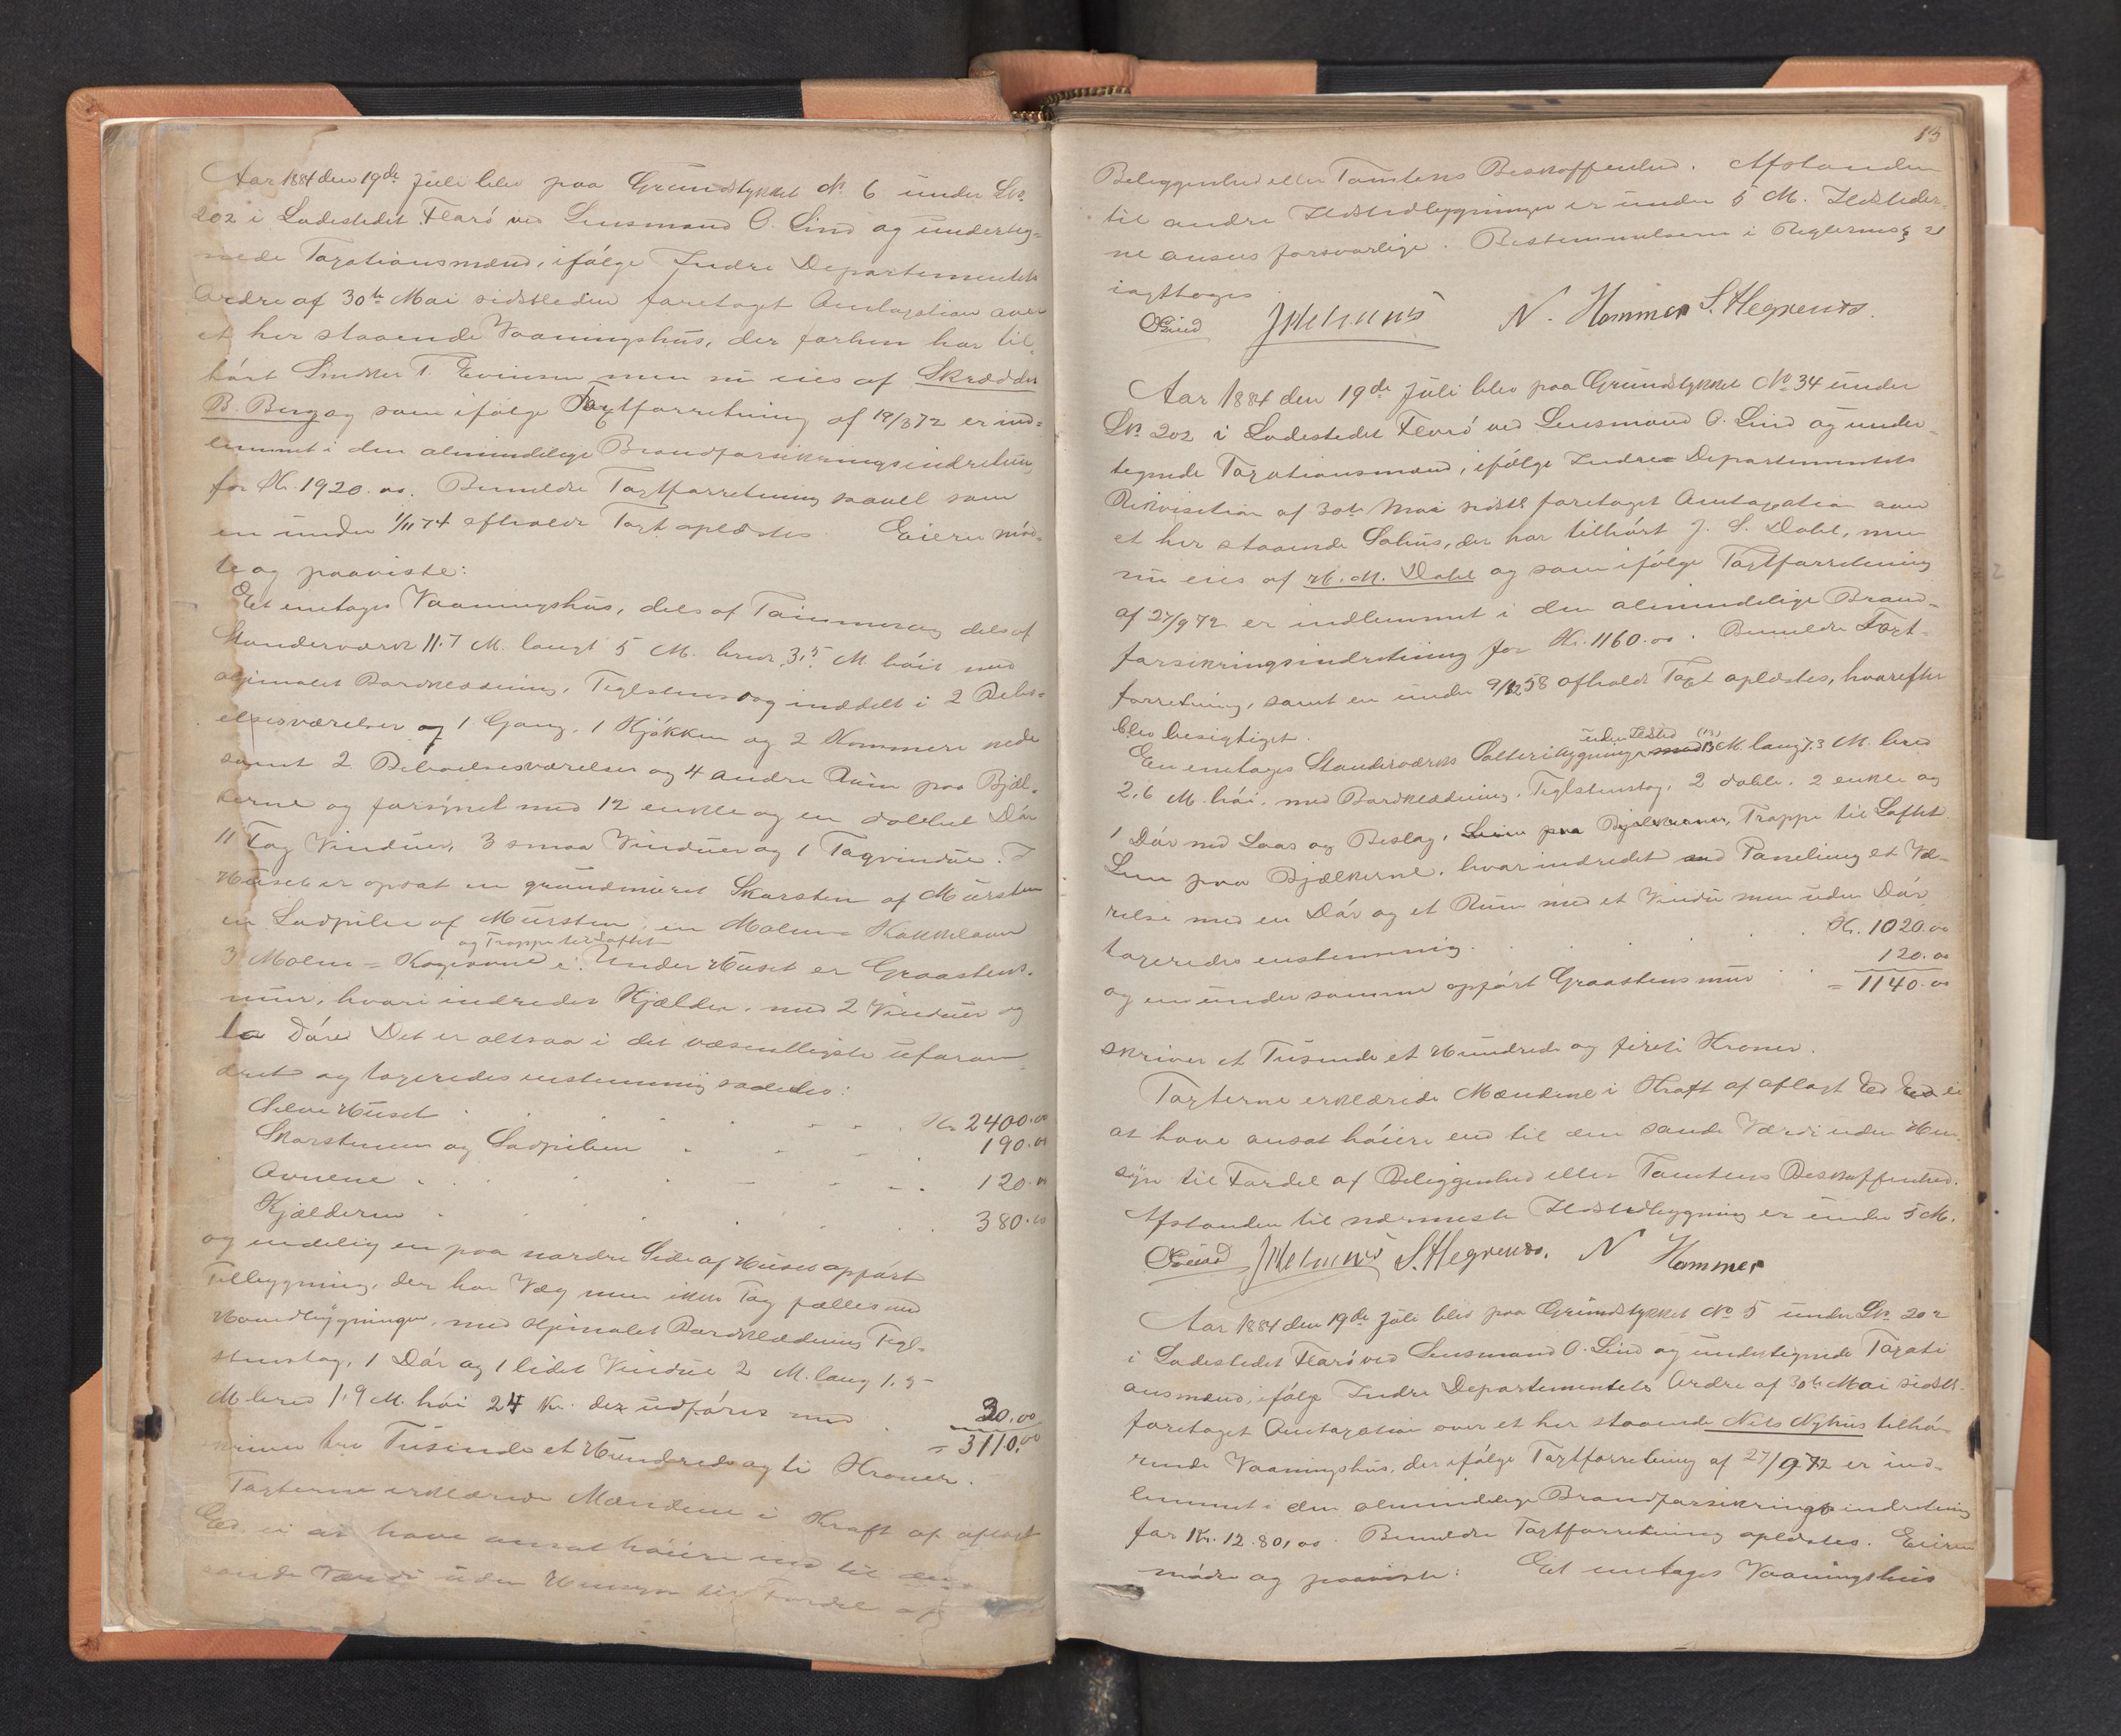 Aar 1884 den 19de Juli blev paa Grundstykket No 6 under Lno
202 i Ladestedet Florö ved Lensmand O. Lind og underteg=
nede Taxationsmænd, ifølge Indre Departementets
Ordre af 30te Mai sidstleden foretaget Omtaxation over
et her staaende Vaaningshus, der forhen har til=
hørt Snedker T. men nu eies af Skrædder
B. Berg og som ifølge Taxtforretning af 19/8 72 er ind=
lemmet i den almindelige Brandforsikringsindretning
for Kr. 1920.00. Bemeldte Taxtforretning saavel som
en under 1/11 74 afholdt Taxt oplæstes. Eieren mød=
te og paaviste:
Et enetages Vaaningshus, dels af Tømmer og dels af
Standerværk 11.7 M. langt 5 M. bred 3,5 M. høit med
oljemalet Bordklædning, Teglstenstag inddelt i 2 Bebo=
elsesværelser og 1 Gang, 1 Kjøkken og 2 Kammere nede
samt 2 Beboelsesværelser og 4 andre Rum paa Bjæl=
kerne og forsynet med 12 enkle og en dobbelt Dør
11 Fag Vinduer, 3 smaa Vinduer og 1 Tagvindue. I
Huset er opsat en grundmuret Skorsten af Mursten
en Ladpibe af Mursten, en Malm= Kakkelovn
og Trappe til Loftet
3 Malm= Kogeovne i. Under Huset er Graastens=
mur, hvori indredet Kjælder, med 2 Vinduer og
to Døre. Det er altsaa i det væsentligste uforan=
dret og taxeredes enstemmig saaledes:
Selve Huset Kr. 2400.00
Skorstenen og Ladpiben 190.00
Ovnene 120.00
Kjælderen 380.00
og endelig en paa nordre Side af Huset opført
Tilbygning, der har Væg men ikke Tag fælles med
Hovedbygningen, med oljemalet Bordklædning Tegl=
stenstag, 1 Dør og 1 lidet Vindue 2 M. lang 1.5
M. bred 1.9 M. høi 24 Kr. der udføres med 20.00
= 3110.00
skriver tre Tusinde et Hundrede og ti Kroner.
Taxterne erklærede Mændene i Kraft af aflagt
Ed ei at have ansat høiere end til den
sande Værdi uden Hensyn til Fordel af
13
Beliggenhed eller Tomtens Beskaffenhed. Afstanden
til andre Ildstedbygninger er under 5 M. Ildsteder=
ne ansees forsvarlige. Bestemmelsen i Reglernes § 21
iagttoges.
OLind N. Hammer S. Hegrenæs.
Aar 1884 den 19de Juli blev paa Grundstykket No 34 under
Lno 202 i Ladestedet Florö ved Lensmand O. Lind og under=
tegnede Taxationsmænd, ifølge Indre Departementets
Rekvisition af 30te Mai sidstl. foretaget Omtaxation over
et her staaende Søhus, der har tilhørt J. S. Dahl, men
nu eies af H. M. Dahl og som ifølge Taxtforretning
af 27/9 72 er indlemmet i den almindelige Brand=
forsikringsindretning for Kr. 1160.00. Bemeldte Taxt=
forretning, samt en under 9/12 58 afholdt Taxt oplæstes, hvorefter
blev besigtiget.
uden Ildsted (13)
En enetages Standerværks Salteribygning med 13 M. lang 7.3 M. bred
2,6 M. høi, med Bordklædning, Teglstenstag, 2 doble, 2 enkle og
1 Dør med Laas og Beslag, Lem paa Bjælkerne, Trappe til Loftet
Lem paa Bjælkerne, hvor indredet med Paneling et Væ=
relse med en Dør og et Rum med et Vindu men uden Dør
taxeredes enstemmig Kr. 1020.00
og en under samme opført Graastensmur 120.00
= 1140.00
skriver et Tusinde et Hundrede og fireti Kroner.
Taxterne erklærede Mændene i Kraft af aflagt Ed Ed ei
at have ansat høiere end til den sande Værdi uden Hen=
syn til Fordel af Beliggenhed eller Tomtens Beskaffenhed.
Afstanden til nærmeste Ildstedbygning er under 5 M.
OLind S. Hegrenæs. N Hammer
Aar 1884 den 19de Juli blev paa Grundstykket No 5 under Lno 202
i Ladestedet Florö ved Lensmand O. Lind og undertegnede Taxati
onsmænd, ifølge Indre Departementets Ordre af 30te Mai sidstl.
foretaget Omtaxation over et her staaende Nils Nyhus tilhø=
rende Vaaningshus, der ifølge Taxtforretning af 27/9 72 er ind=
lemmet i den almindelige Brandforsikringsindretning
for Kr. 12.80,00. Bemeldte Taxtforretning oplæstes. Eieren
mødte og paaviste: Et enetages Vaaningshus